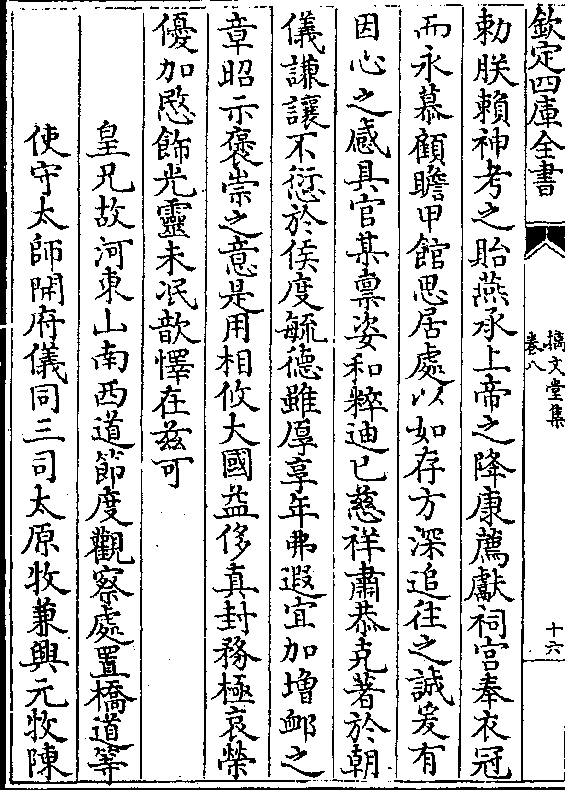 欽定四庫全書
摛文堂集
卷八
十六
勅朕賴神考之貽燕承上帝之降康薦獻祠宫奉衣冠
而永慕顧瞻甲館思居處以如存方深追往之誠爰有
因心之感具官某禀姿和粹迪已慈祥肅恭克著於朝
儀謙讓不愆於侯度毓德雖厚享年弗遐宜加増䘏之
章昭示褒崇之意是用相攸大國益侈真封務極哀榮
優加愍飾光靈未冺歆懌在兹可
皇兄故河東山南西道節度觀察處置橋道等
使守太師開府儀同三司太原牧兼興元牧陳